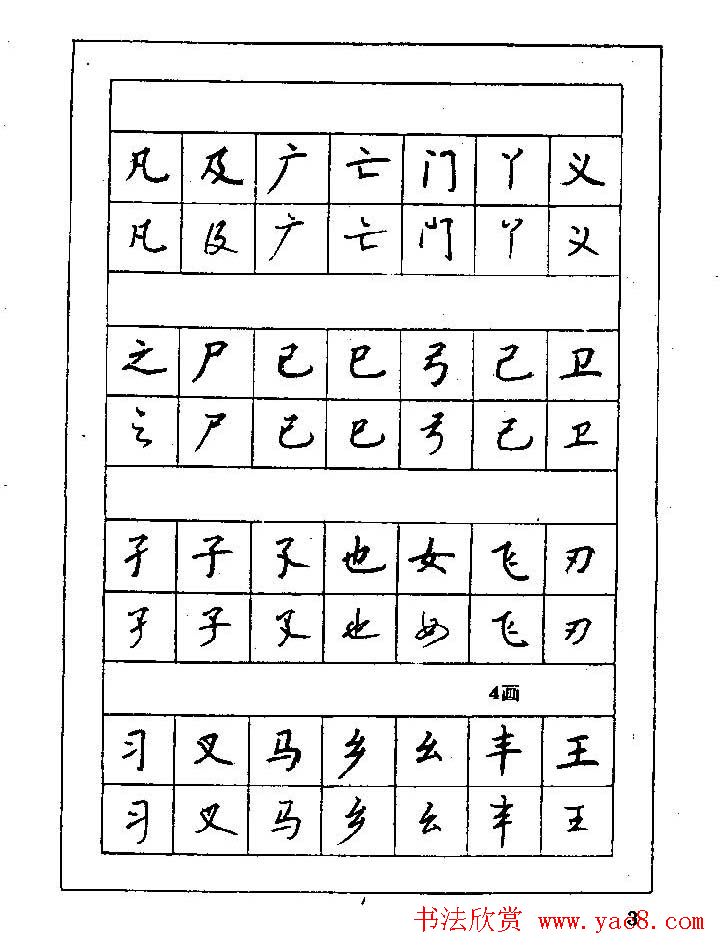 凡 及 广 亡 门 丫 义
凡 及 广 亡 门 丫 义
之 尸 已 巳 弓 己 卫
之 尸 已 巳 弓 己 卫
孑 子 孓 也 女 飞 刃
孑 子 孓 也 女 飞 刃
4画
习 叉 马 乡 幺 丰 王
习 叉 马 乡 幺 丰 王
3
书法欣赏 www.yac8.com